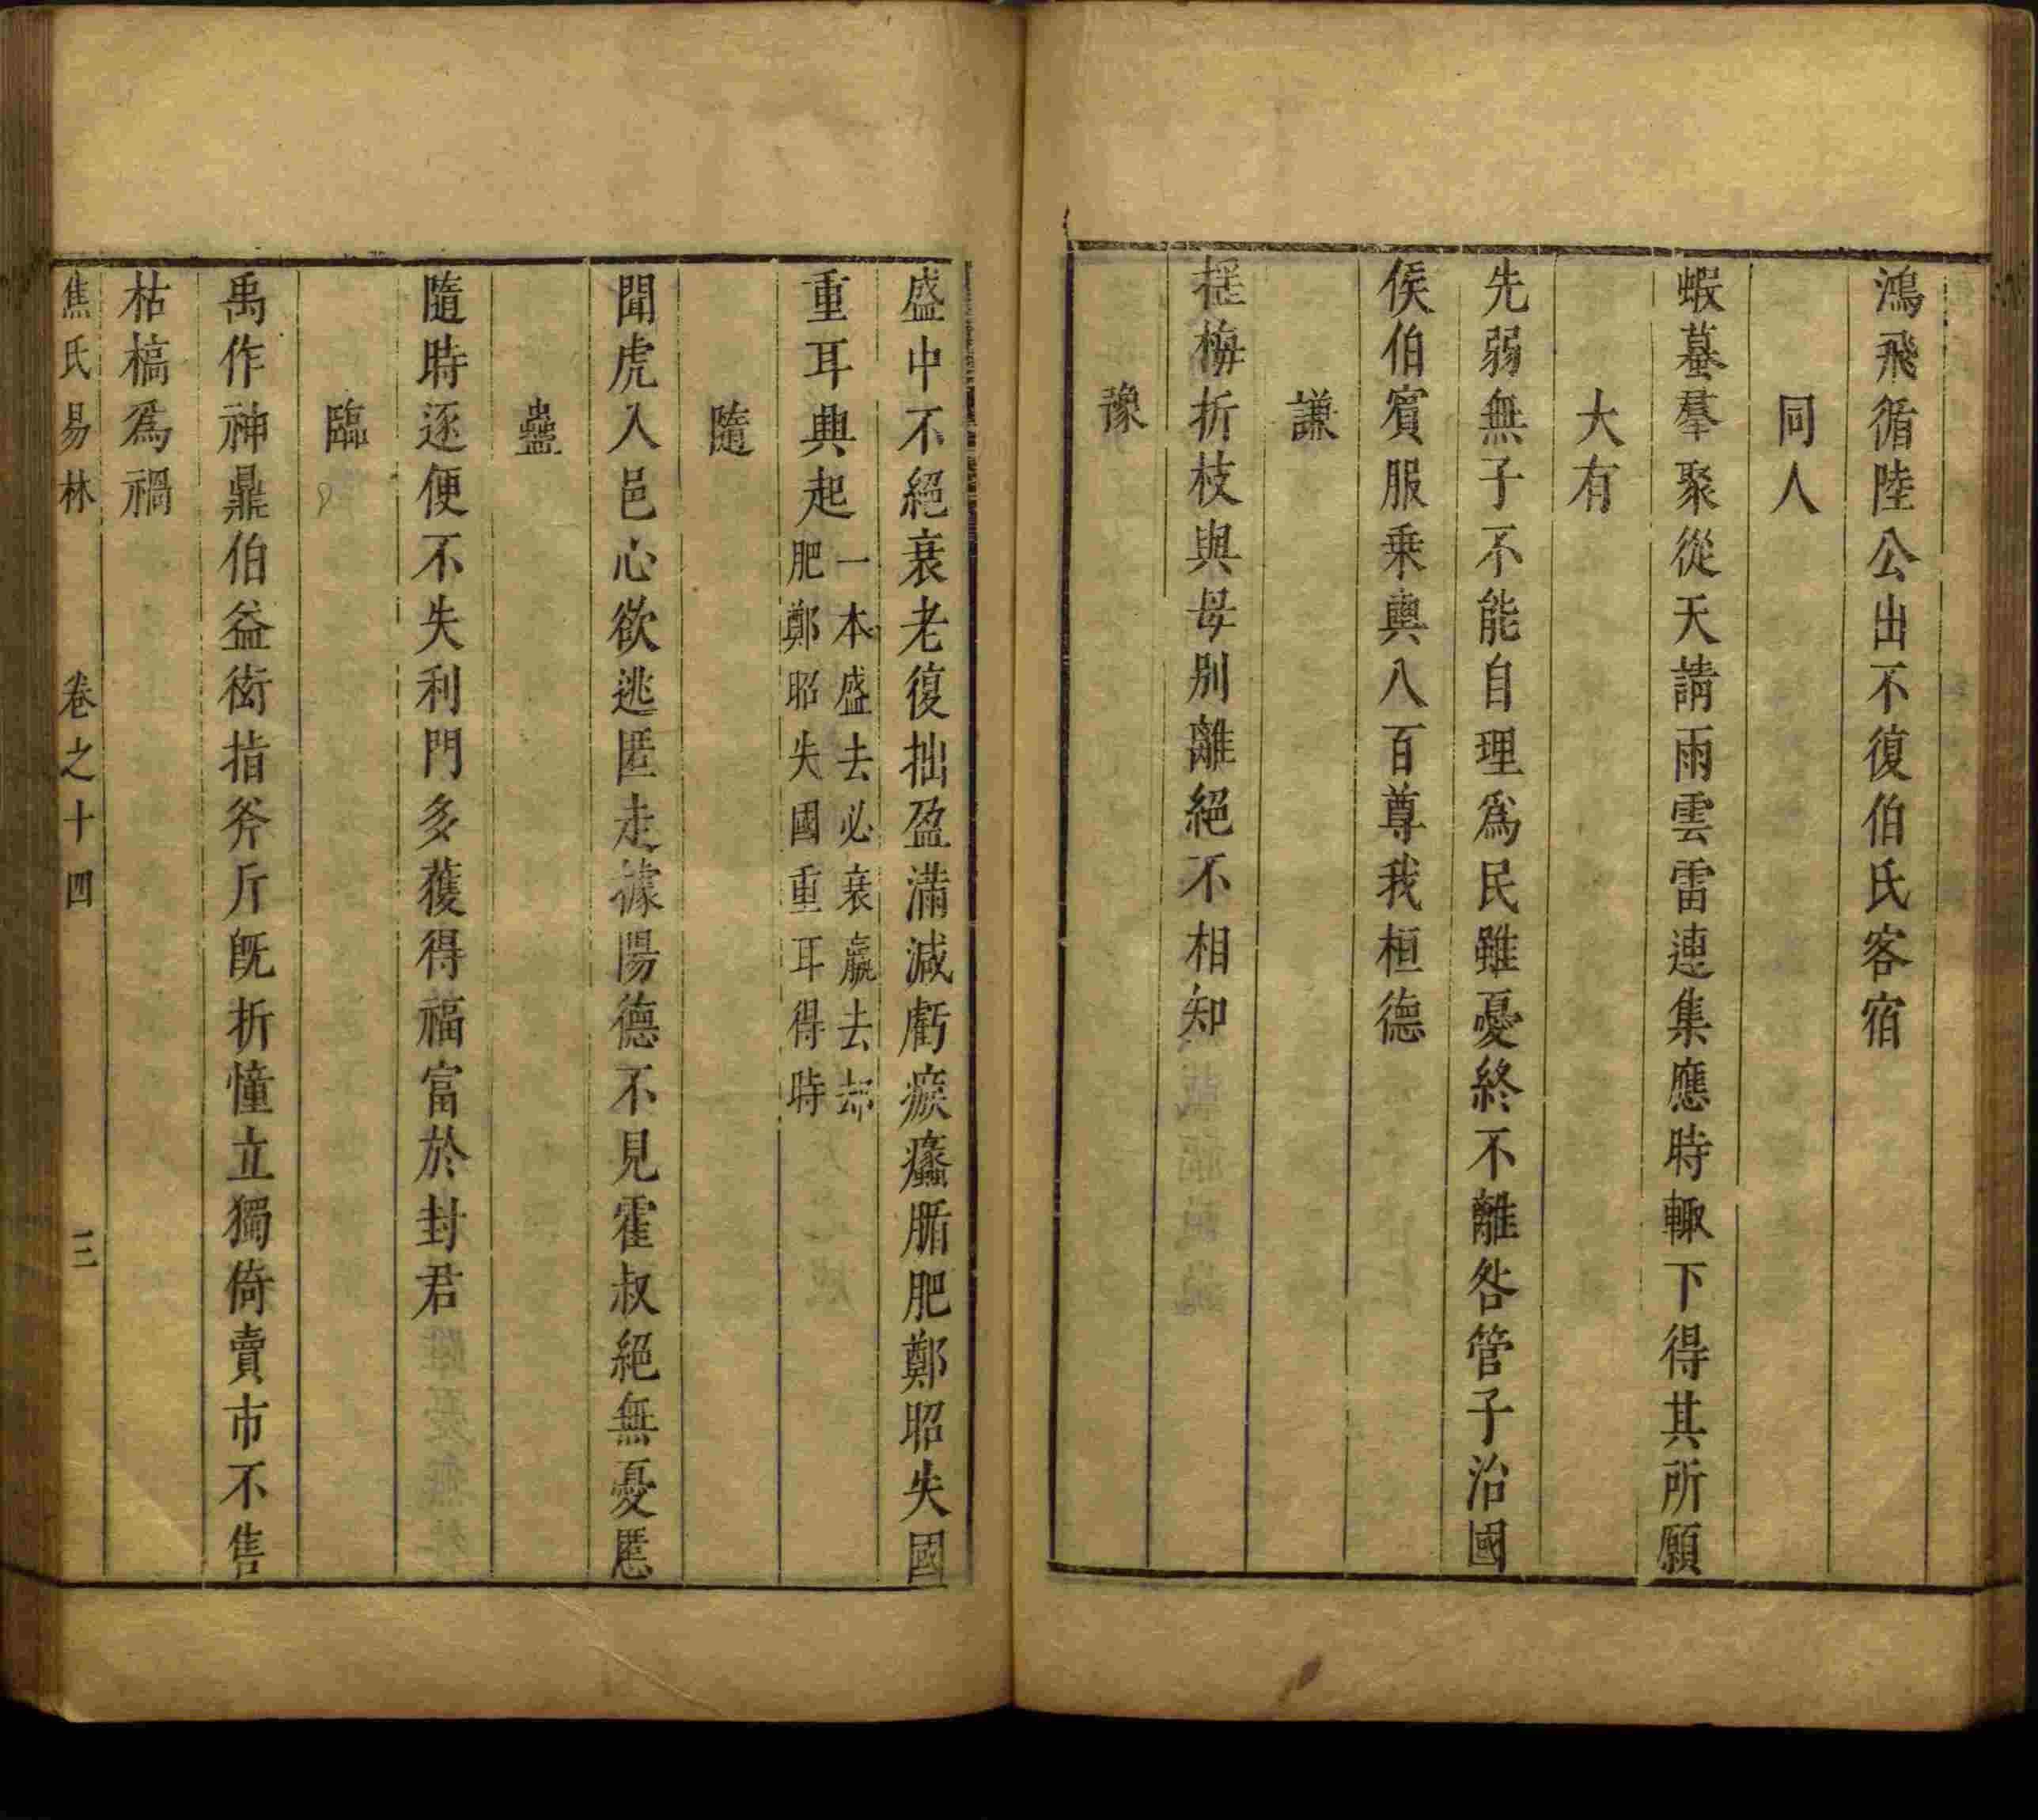 鴻飛循陸公出不復伯氏客宿
同人
蝦蟇羣聚從天請雨雲雷連集應時輙下得其所願
大有
先弱無子不能自理爲民雖憂終不離咎管子治國
侯伯賓服乗輿八百尊我桓德
謙
摇梅折枝與母别離絕不相知
豫
盛中不絕衰老復拙盈滿減虧瘯癳腯肥鄭昭失國
重耳興起一本盛去必衰羸去却
肥鄭昭失國重耳得時
隨
聞虎入邑心欲逃匿走據陽德不見霍叔絕無憂慝
蠱
隨時逐便不失利門多獲得福富於封君
臨
禹作神鼎伯益銜指斧斤旣折憧立獨倚賣市不售
枯槁爲禍
焦氏易林 卷之十四 三